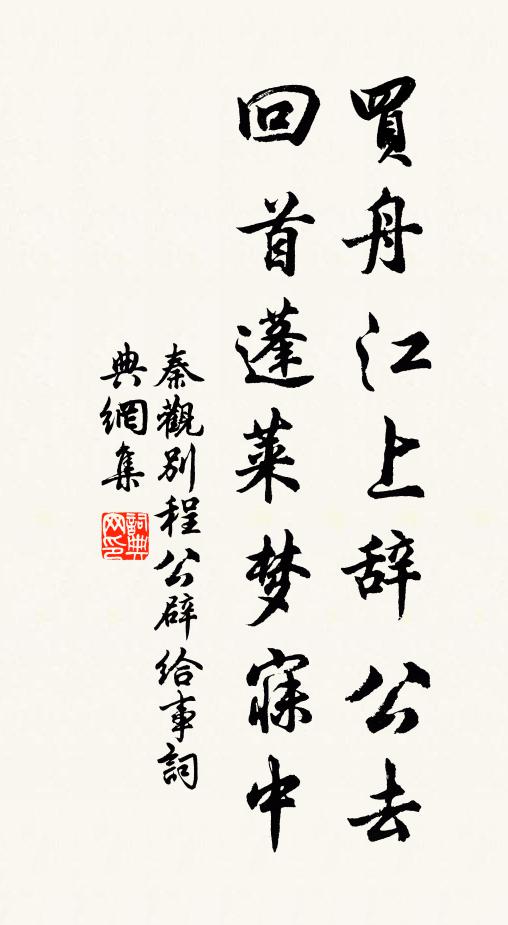 買舟江上辞公去
回首蓬莱梦寐中
秦觀別程公辟给事詞
典網集
詞典
网印